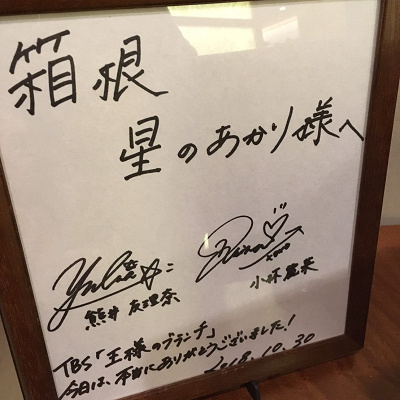 箱根
星のあかり様へ
熊井友理奈
小林麗菜
TBS「王様のブランチ」
今日は、本当にありがとうございました!
2018.10.30